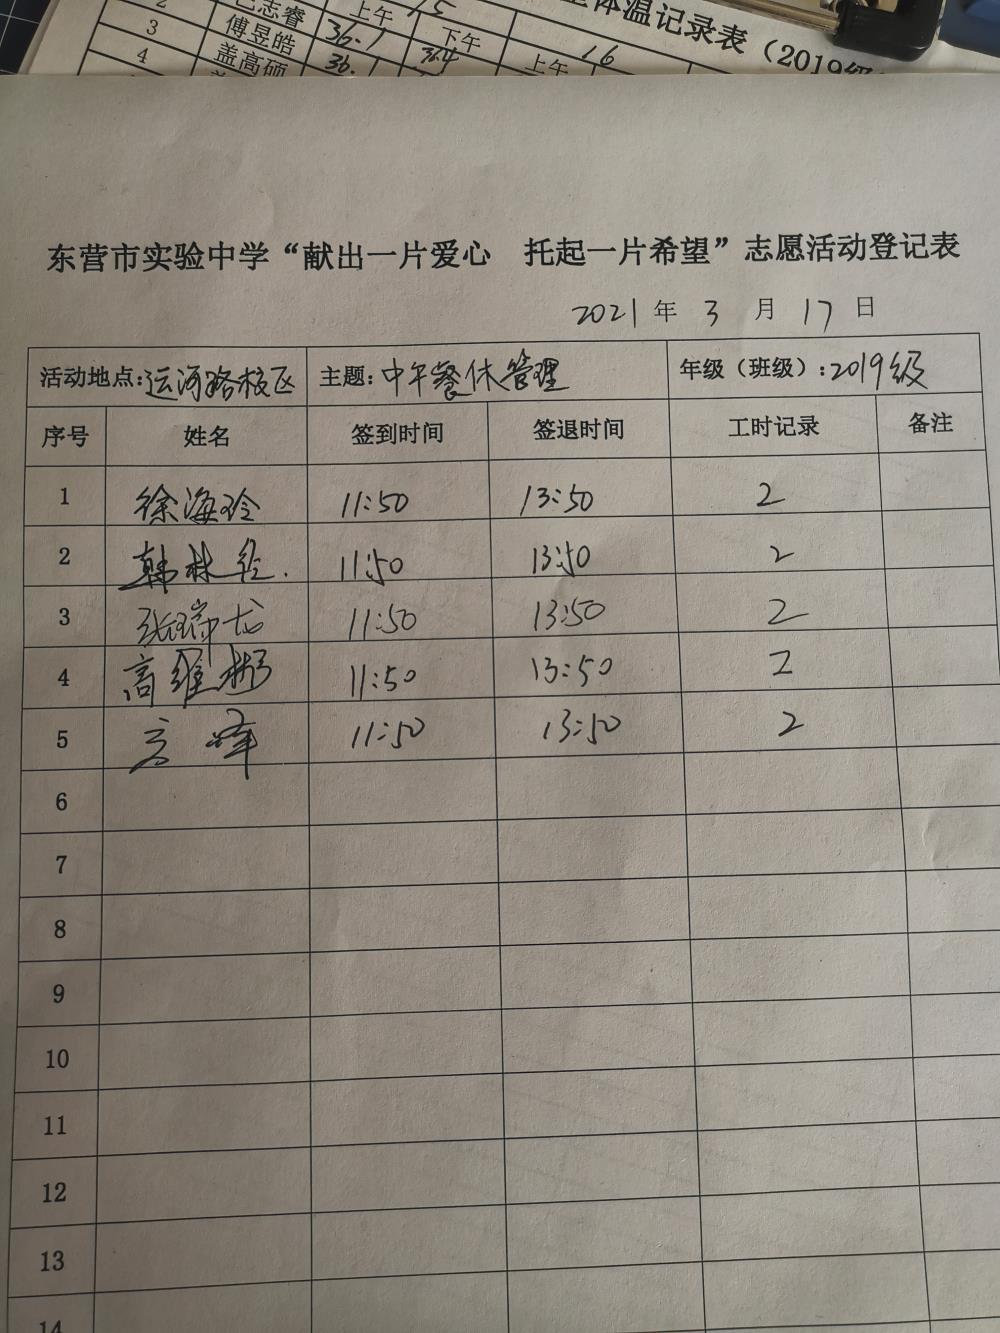 2 志睿 上午 15
3 傅昱皓 36.1 下午
4 盖高硕 36. 36.4 上午 16
体温记录表（2019级
东营市实验中学“献出一片爱心 托起一片希望”志愿活动登记表
2021 年 3 月 17 日
活动地点：运河路校区 主题：中午餐休管理 年级（班级）：2019级
序号 姓名 签到时间 签退时间 工时记录 备注
1 徐海玲 11:50 13:50 2
2 韩林 11:50 13:50 2
3 张瑞龙 11:50 13:50 2
4 高维彬 11:50 13:50 2
5 峰 11:50 13:50 2
6
7
8
9
10
11
12
13
14